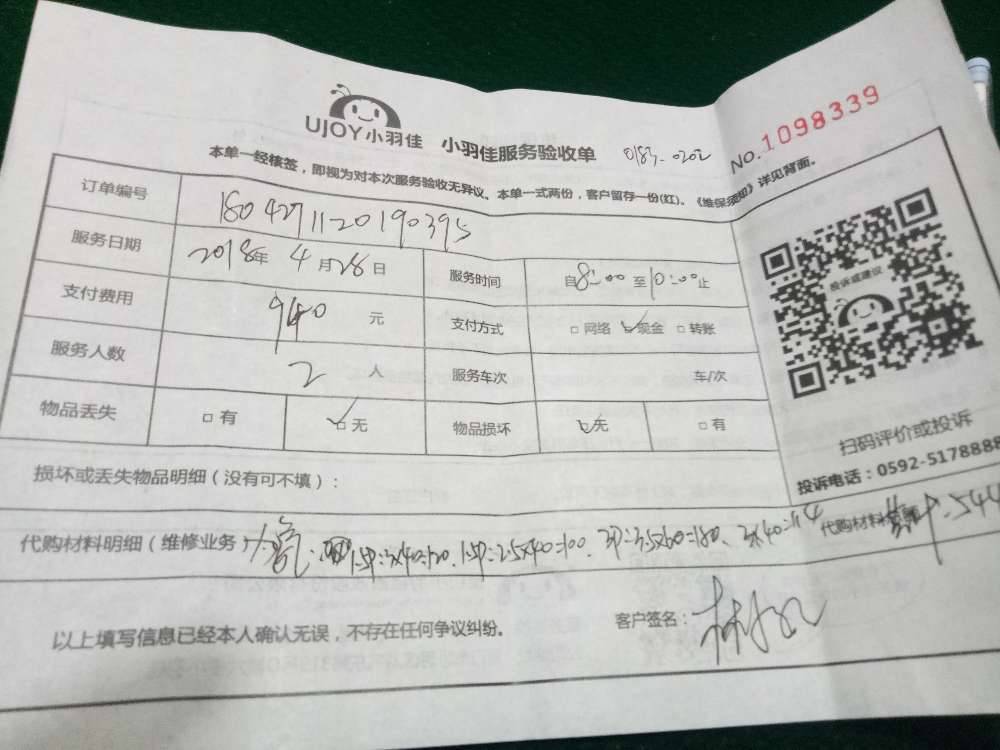 UJOY小羽佳 小羽佳服务验收单 0183-0202 NO.1098339
本单一经核签，即视为对本次服务验收无异议。本单一式两份，客户留存一份(红)。《维保须知》详见背面。
订单编号 1804271120190395
服务日期 2018年4月28日 服务时间 自8:00至10:00止
支付费用 940元 支付方式 □网络 ☑现金 □转账
服务人数 2人 服务车次 车/次
物品丢失 □有 ☑无 物品损坏 ☑无 □有
投诉或建议
扫码评价或投诉
投诉电话：0592-5178888
损坏或丢失物品明细（没有可不填）：
代购材料明细（维修业务） 1.5P:3x40=120、1.5P:2.5x40=100、3P:3.5x60=180、 代购材料 544
以上填写信息已经本人确认无误，不存在任何争议纠纷。 客户签名：